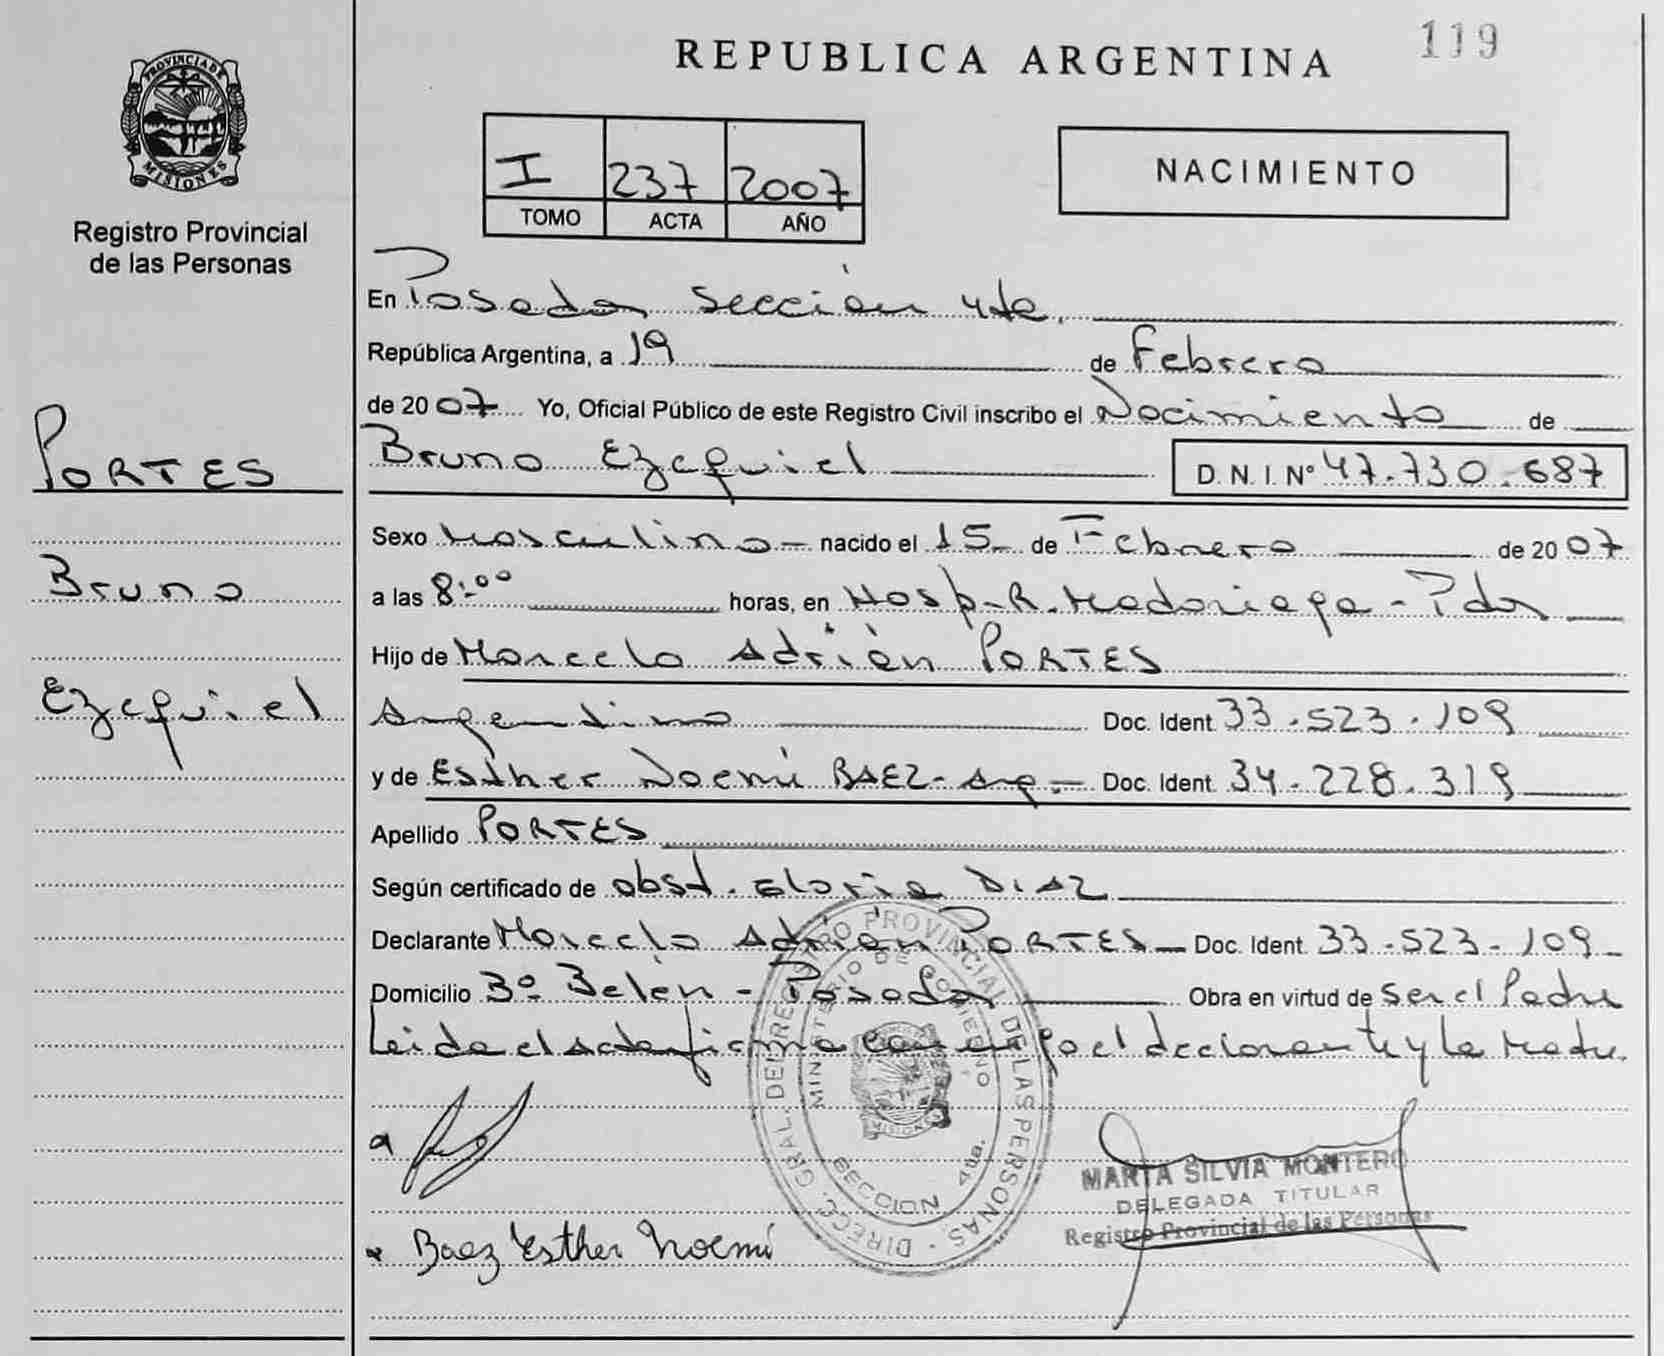 119
REPUBLICA ARGENTINA
PROVINCIA DE
MISIONES
Registro Provincial
de las Personas
I 237 2007
TOMO ACTA AÑO
NACIMIENTO
En Posadas Sección 4ta.
República Argentina, a 19 de Febrero
de 2007 Yo, Oficial Público de este Registro Civil inscribo el Nacimiento de
PORTES
Bruno
Ezequiel
Bruno Ezequiel D.N.I. Nº 47.730.687
Sexo Masculino nacido el 15 de Febrero de 2007
a las 8:00 horas, en Hosp. R. Madariaga - Pdas
Hijo de Marcelo Adrián PORTES
Argentino Doc. Ident. 33.523.109
y de Esther Noemí BAEZ - Arg. Doc. Ident. 34.228.319
Apellido PORTES
Según certificado de obst. Gloria DIAZ
Declarante Marcelo Adrián PORTES Doc. Ident. 33.523.109
Domicilio Bº Belén - Posadas Obra en virtud de ser el Padre
Leida el Acta firma conmigo el declarante y la Madre.
DIRECC. GRAL. DEL REGISTRO PROVINCIAL DE LAS PERSONAS
MINISTERIO DE GOBIERNO
MISIONES
SECCION 4ta.
MARTA SILVIA MONTERO
DELEGADA TITULAR
Registro Provincial de las Personas
Baez Esther Noemí